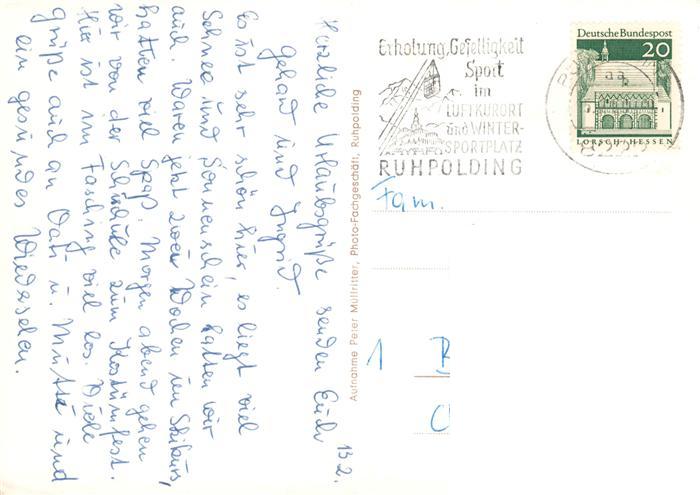 13.2.
Herzliche Urlaubsgrüße senden Euch
Gehard und Ingrid.
Es ist sehr schön hier, es liegt viel
Schnee und Sonnenschein hatten wir
auch. Waren jetzt zwei Wochen im Skikurs,
hatten viel Spaß. Morgen abend gehen
wir von der Schischule zum Kostümfest.
Hier ist im Fasching viel los. Viele
grüße auch an Vati u. Mutti und
ein gesundes Wiedersehen.
Aufnahme Peter Müllritter, Photo-Fachgeschäft, Ruhpolding
Erholung, Geselligkeit
Sport
im
LUFTKURORT
und WINTER-
SPORTPLATZ
RUHPOLDING
Deutsche Bundespost
20
LORSCH/HESSEN
Fam.
1 B